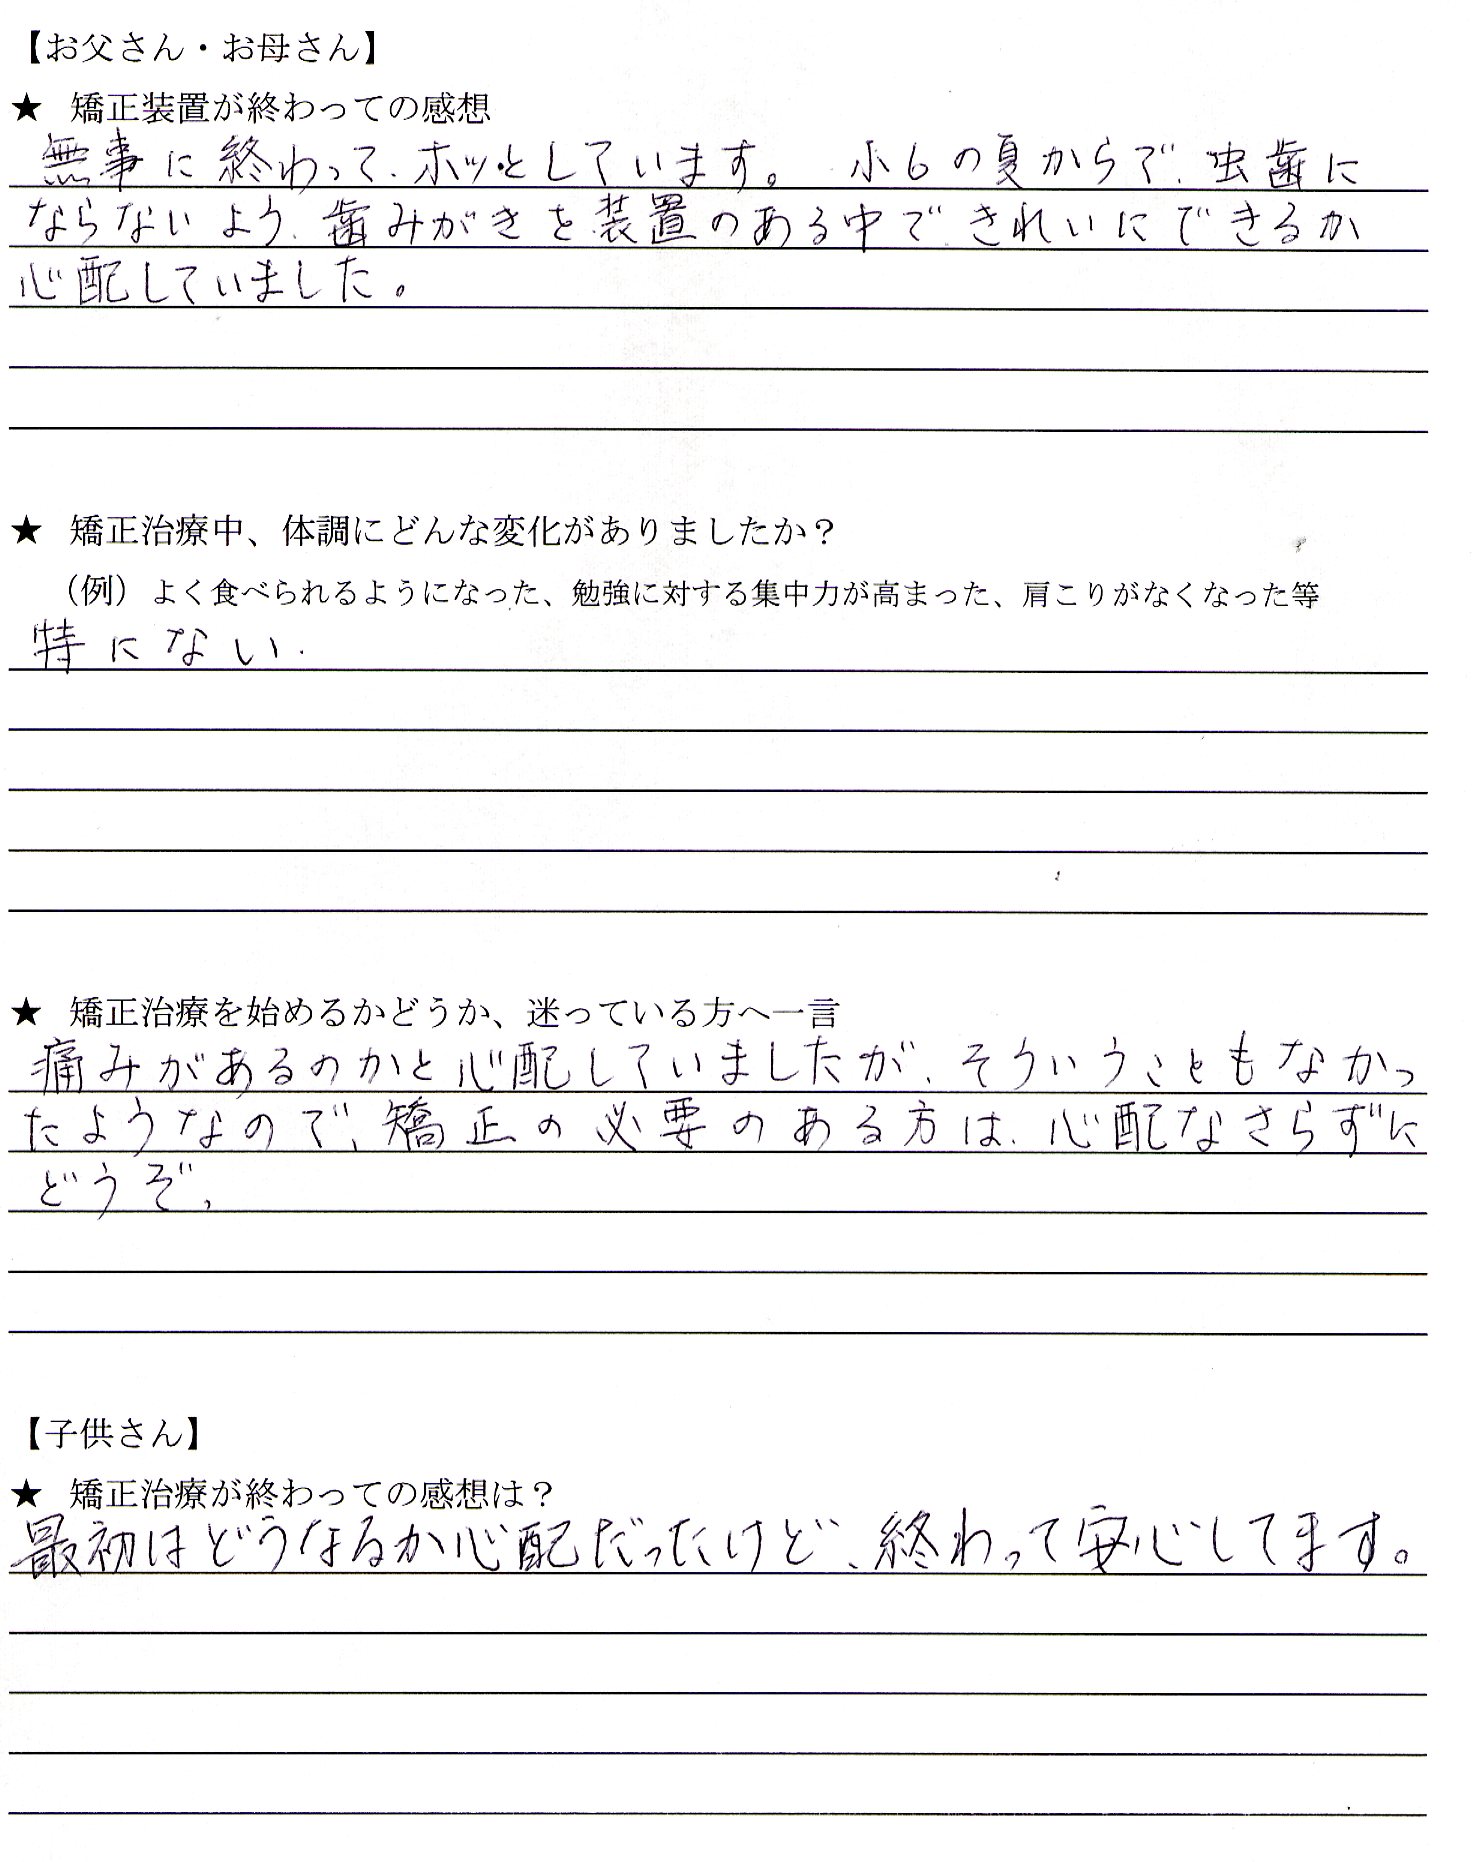 【お父さん・お母さん】
★ 矯正装置が終わっての感想
無事に終わって、ホッとしています。 小6の夏からで、虫歯に
ならないよう、歯みがきを装置のある中できれいにできるか
心配していました。
★ 矯正治療中、体調にどんな変化がありましたか？
（例）よく食べられるようになった、勉強に対する集中力が高まった、肩こりがなくなった等
特にない.
★ 矯正治療を始めるかどうか、迷っている方へ一言
痛みがあるのかと心配していましたが、そういうこともなかっ
たようなので、矯正の必要のある方は、心配なさらずに
どうぞ。
【子供さん】
★ 矯正治療が終わっての感想は？
最初はどうなるか心配だったけど、終わって安心してます。